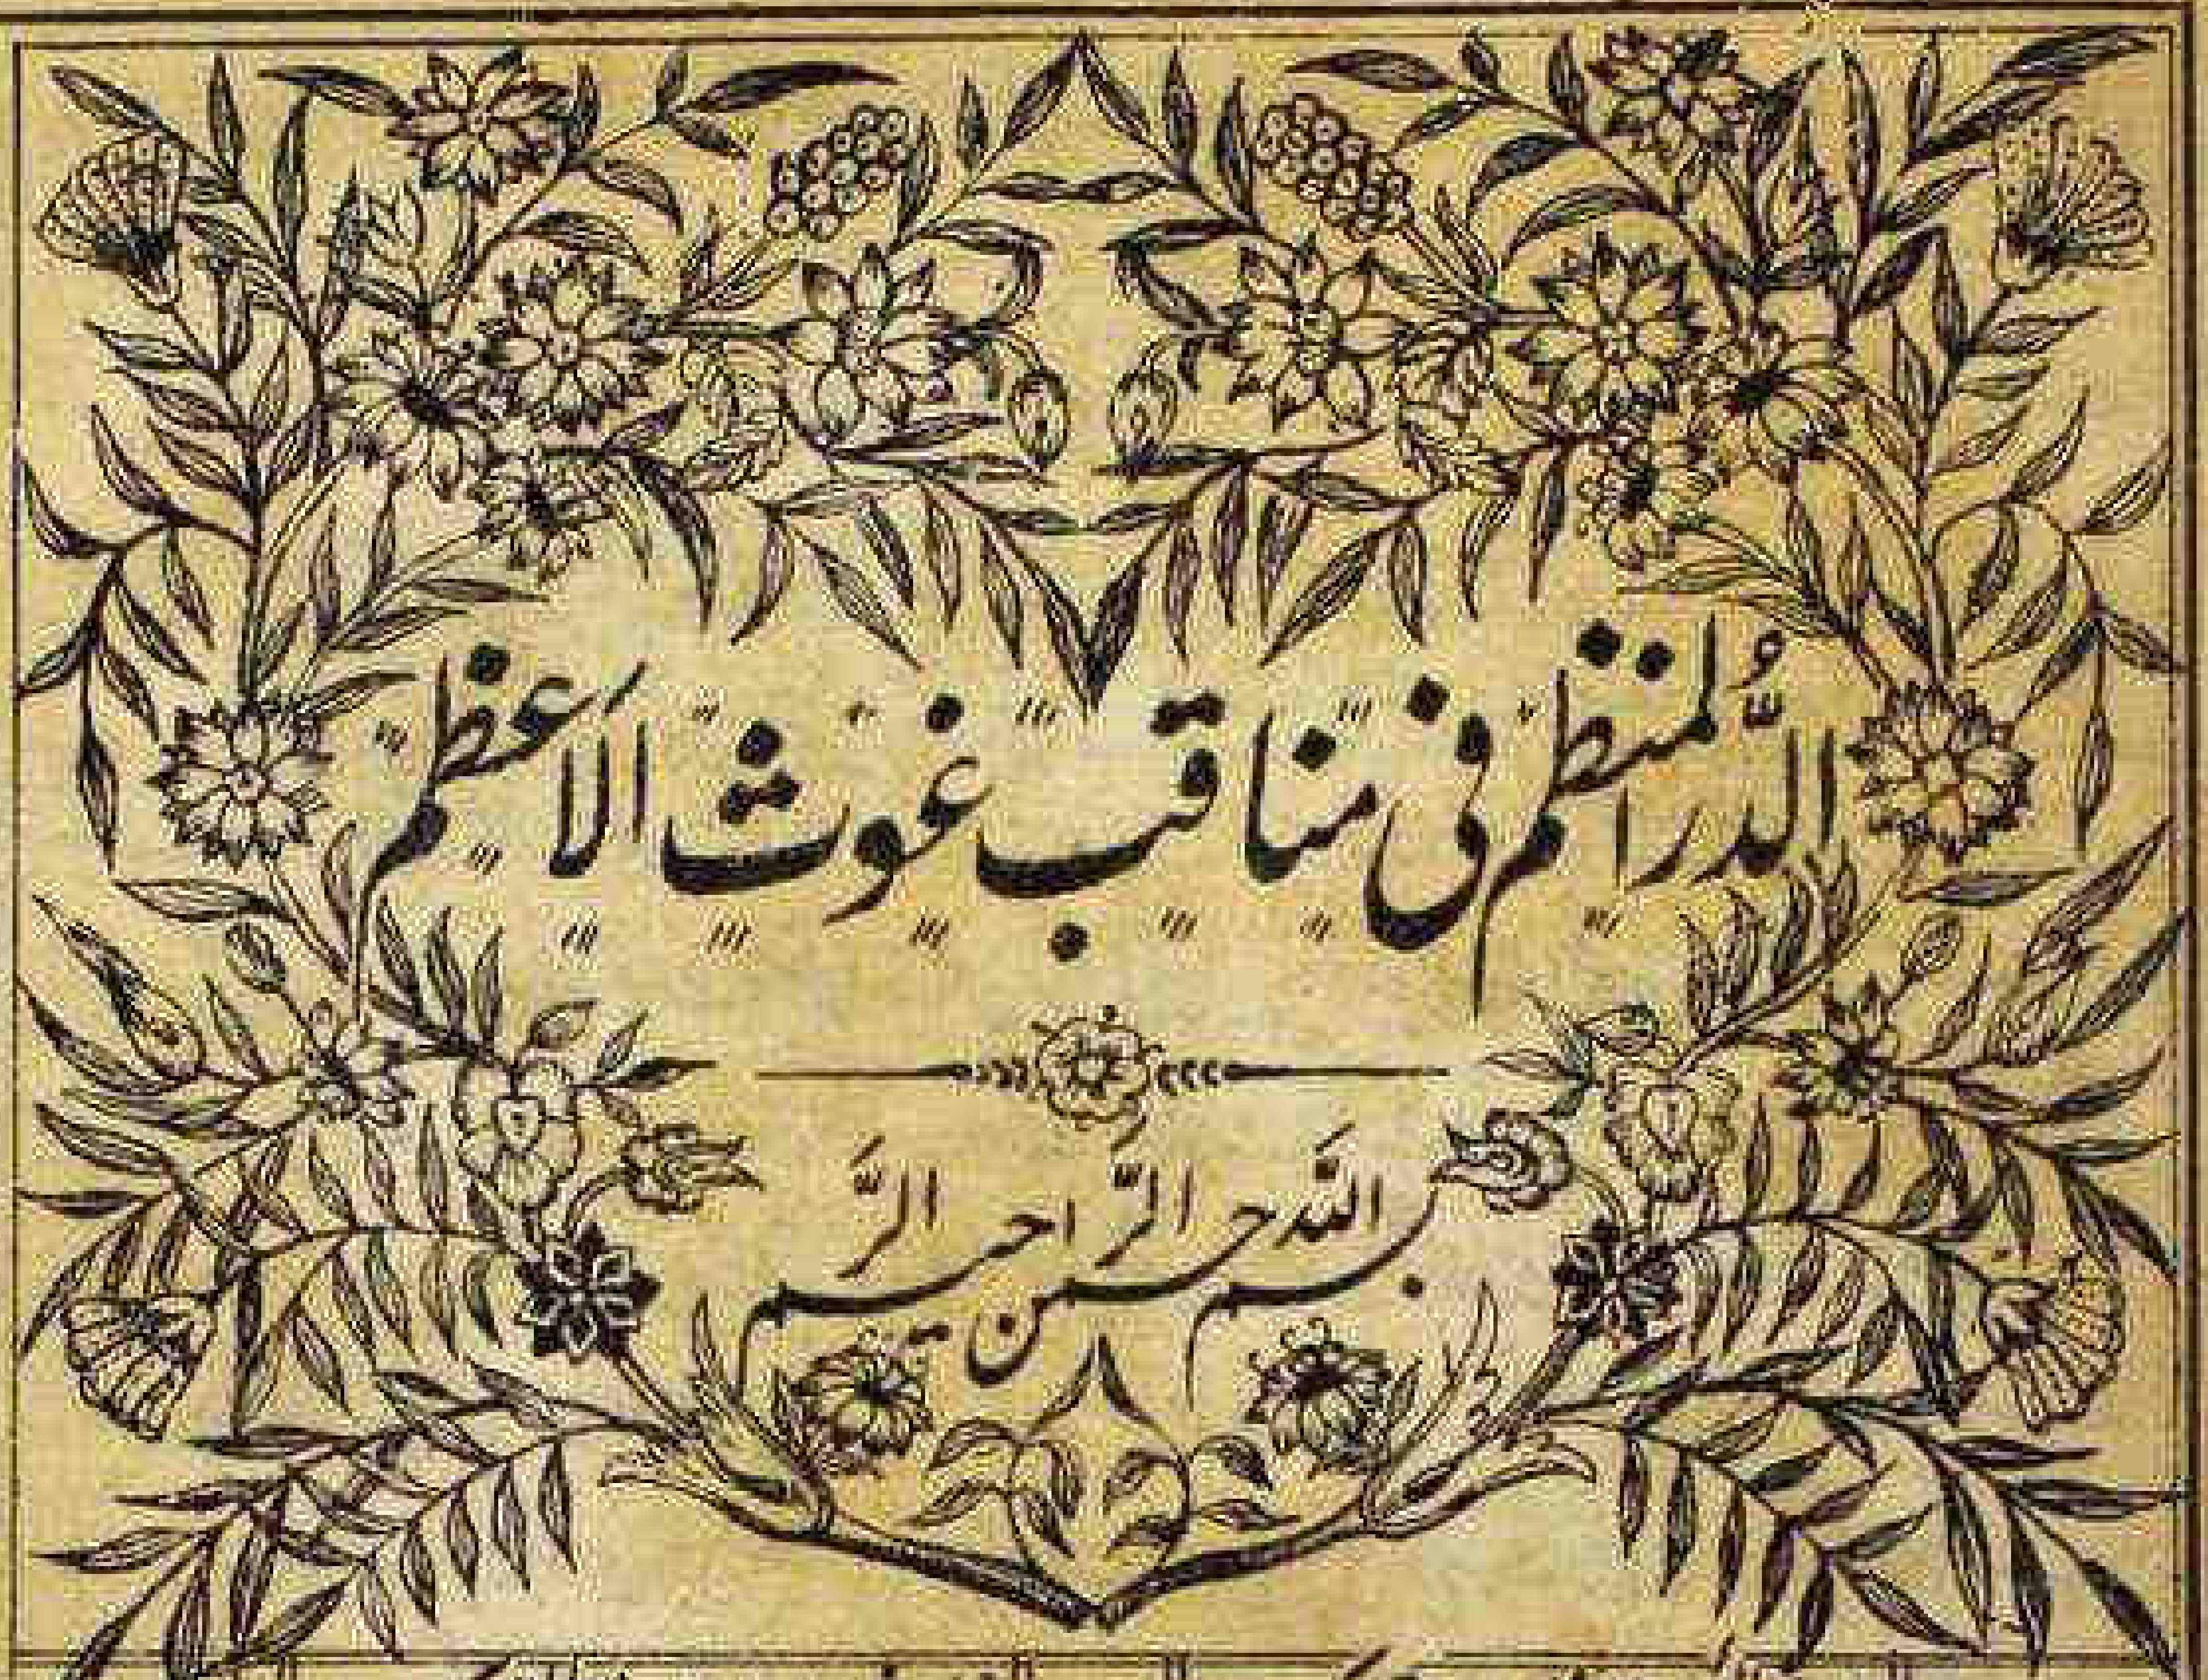 الدُّرُّ المنتظم فی مناقب غوث الاعظم
بسم اللَّه الرَّحمن الرَّحیم